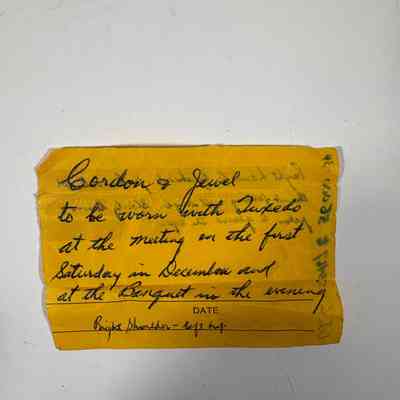 Cordon & Jewel
to be worn with Tuxedo
at the meeting on the first
Saturday in December and
at the Banquet in the evening
DATE
Right Shoulder - left hip